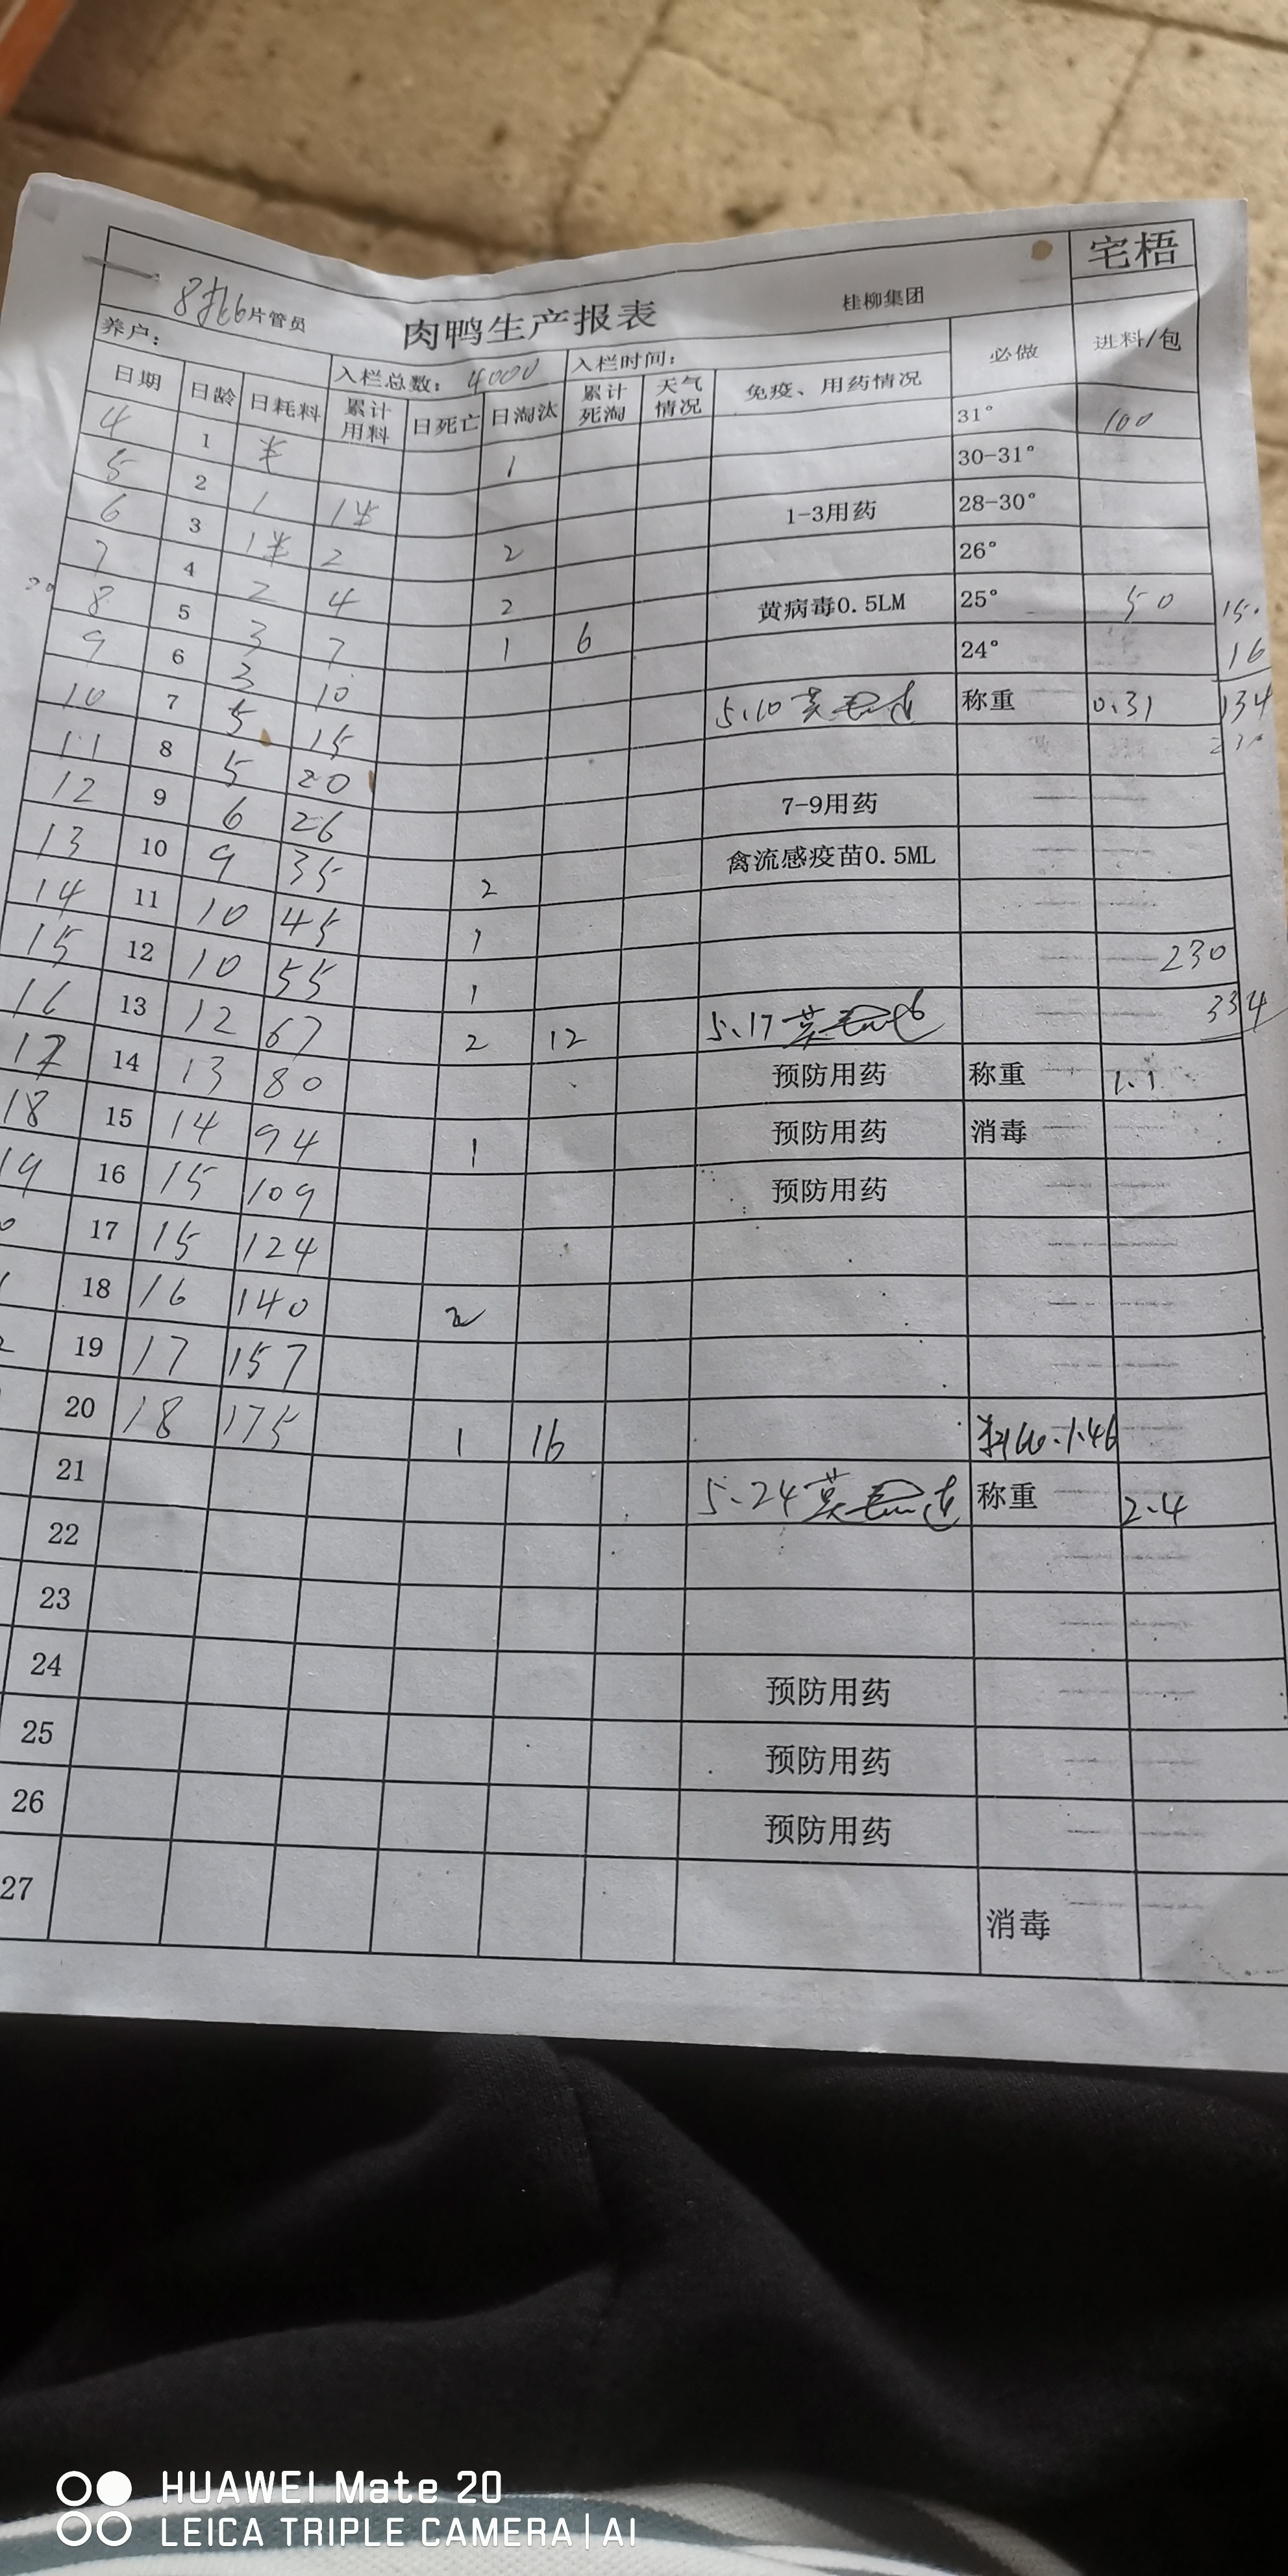 宅梧
8批6片管员 肉鸭生产报表 桂柳集团
养户： 入栏总数：4000 入栏时间： 必做 进料/包
日期 日龄 日耗料 累计用料 日死亡 日淘汰 累计死淘 天气情况 免疫、用药情况
4 1 半 1 31° 100
5 2 1 1半 30-31°
6 3 1半 2 2 1-3用药 28-30°
7 4 2 4 2 26°
20 8 5 3 7 1 6 黄病毒0.5LM 25° 50 15.
9 6 3 10 24° 16
10 7 5 15 5.10 称重 0.31 134
11 8 5 20
12 9 6 26 7-9用药
13 10 9 35 2 禽流感疫苗0.5ML
14 11 10 45 1
15 12 10 55 1 230
16 13 12 67 2 12 5.17 334
17 14 13 80 预防用药 称重 1.1
18 15 14 94 1 预防用药 消毒
19 16 15 109 预防用药
17 15 124
18 16 140 2
19 17 157
20 18 175 1 16 1.46
21 5.24 称重 2.4
22
23
24 预防用药
25 预防用药
26 预防用药
27 消毒
HUAWEI Mate 20
LEICA TRIPLE CAMERA | AI